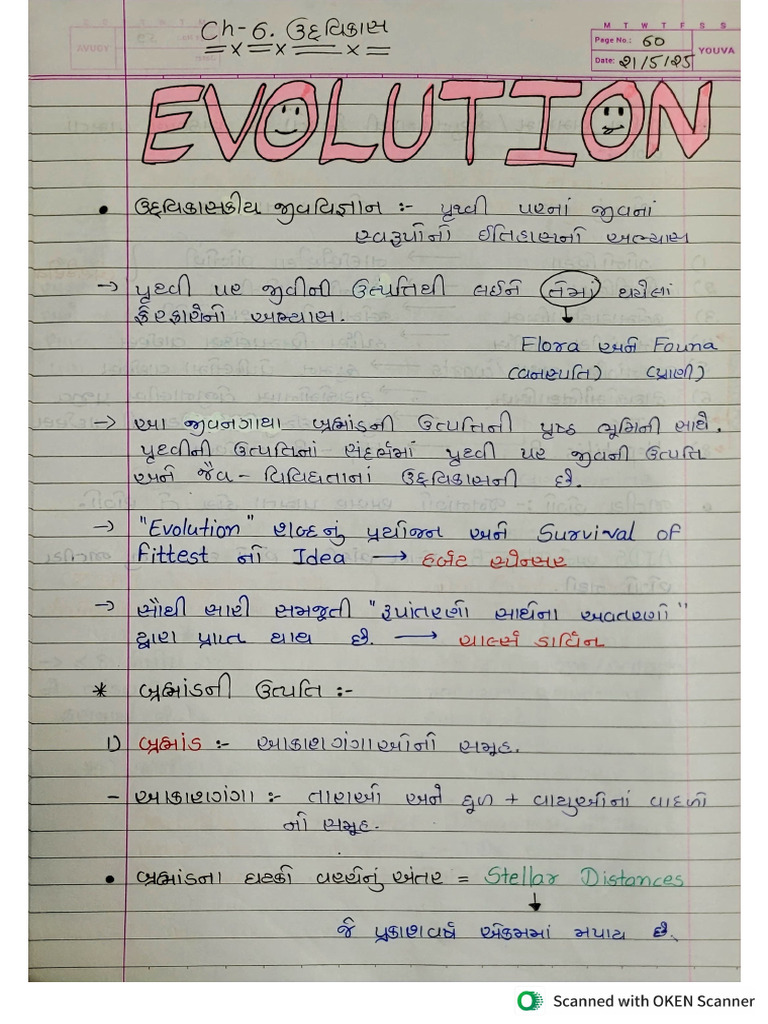 Ch-6. ઉદ્દવિકાસ
M T W T F S S
Page No.: 60
YOUVA
Date: 21/5/25
EVOLUTION
• ઉદ્દવિકાસકીય જીવવિજ્ઞાન :- પૃથ્વી પરનાં જીવનાં
સ્વરૂપોનો ઈતિહાસનો અભ્યાસ
→ પૃથ્વી પર જીવોની ઉત્પત્તિથી લઈને તેમાં થયેલાં
ફેરફારોનો અભ્યાસ.
Flora અને Founa
(વનસ્પતિ) (પ્રાણી)
→ આ જીવનગાથા બ્રહ્માંડની ઉત્પતિની પૃષ્ઠ ભૂમિની સાથે.
પૃથ્વીની ઉત્પતિનાં સંદર્ભમાં પૃથ્વી પર જીવની ઉત્પતિ
અને જૈવ - વિવિધતાનાં ઉદ્દવિકાસની છે.
→ "Evolution" શબ્દનું પ્રયોજન અને Survival of
Fittest નો Idea → હર્બર્ટ સ્પેન્સર
→ સૌથી સારી સમજૂતી "રૂપાંતરણો સાથેના અવતરણો"
દ્વારા પ્રાપ્ત થાય છે. → ચાર્લ્સ ડાર્વિન
* બ્રહ્માંડની ઉત્પતિ :-
1) બ્રહ્માંડ :- આકાશગંગાઓનો સમૂહ.
- આકાશગંગા :- તારાઓ અને ધૂળ + વાયુઓનાં વાદળો
નો સમૂહ.
• બ્રહ્માંડના ઘટકો વચ્ચેનું અંતર = Stellar Distances
જે પ્રકાશવર્ષ એકમમાં મપાય છે.
Scanned with OKEN Scanner